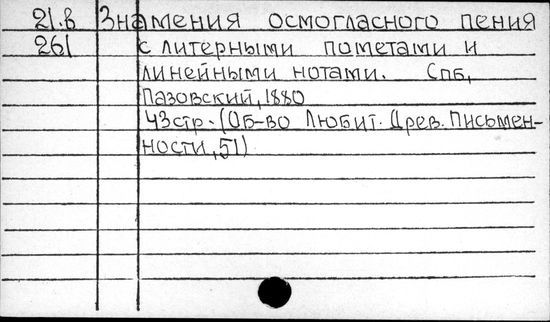 21.в Знамения осмогласного пения
261 с литерными пометами и
линейными нотами. Спб,
Пазовский, 1880
43стр. (Об-во Любит. Древ. Письмен-
ности, 51)